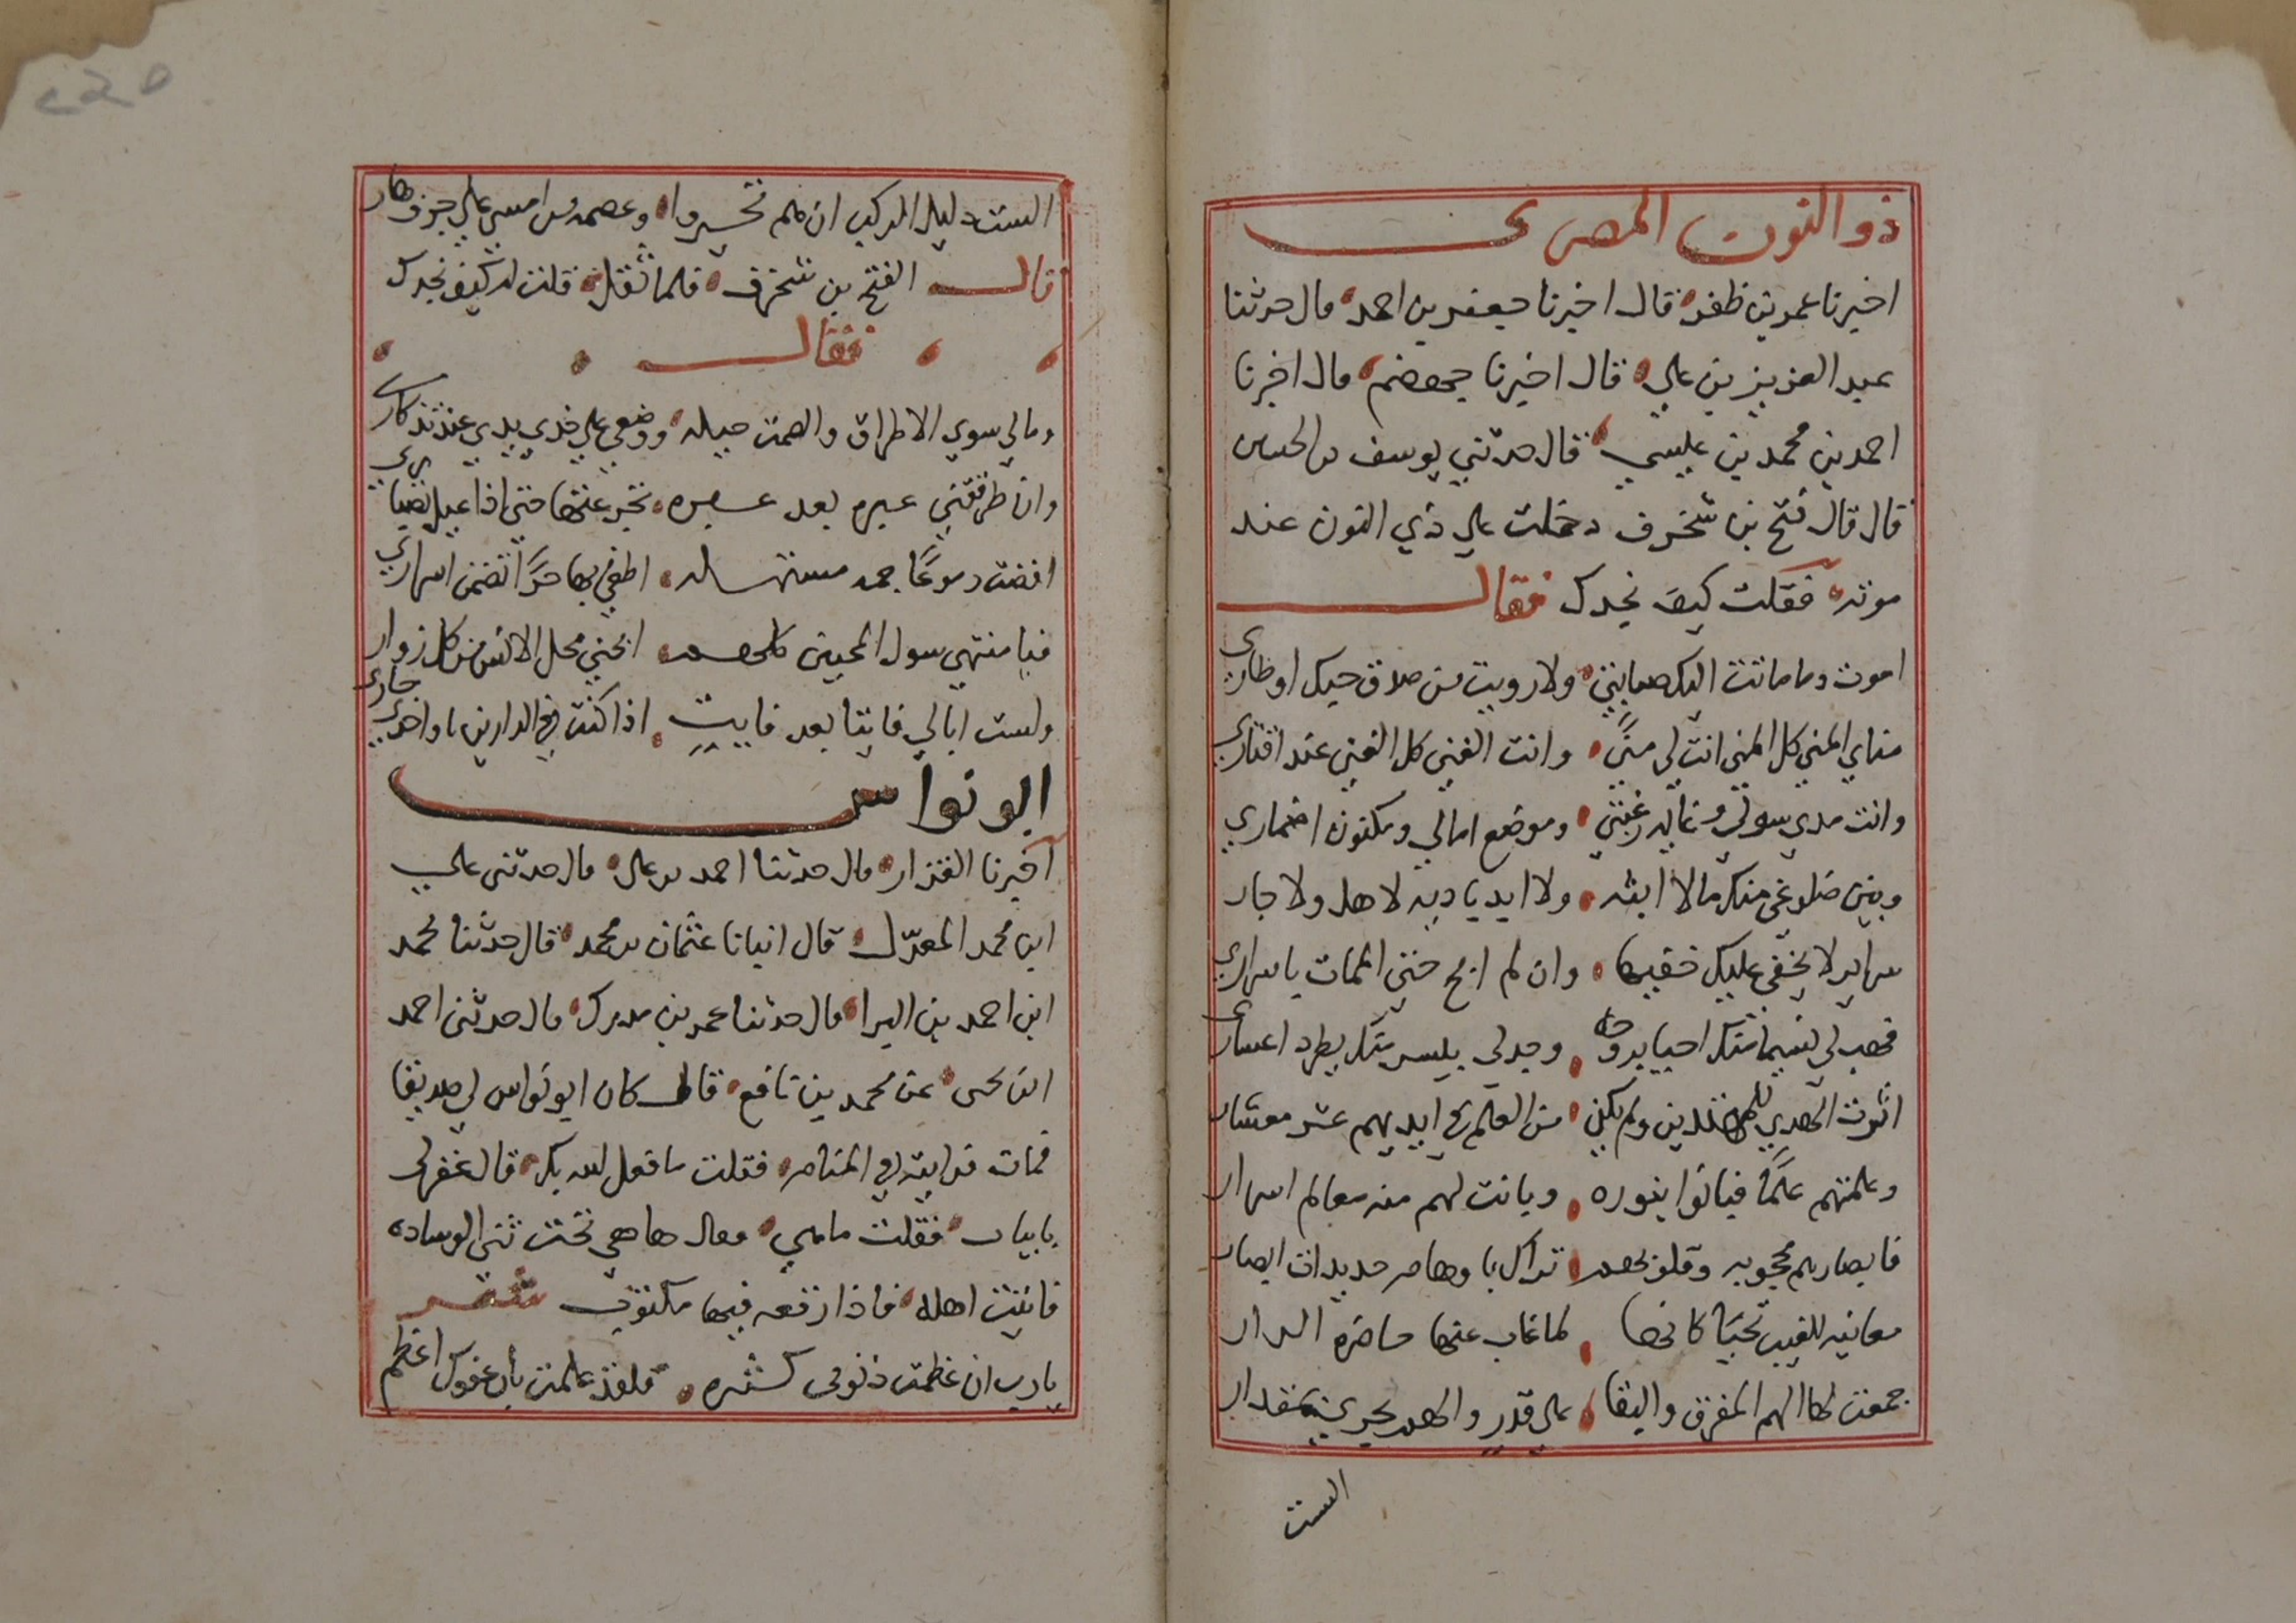 ذو النون المصري
اخبرنا عمر بن ظفر قال اخبرنا جعفر بن احمد قال حدثنا
عبد العزيز بن علي قال اخبرنا جهضم قال اخبرنا
احمد بن محمد بن عيسي قال حدثني يوسف بن الحسين
قال قال فتح بن شخرف دخلت علي ذي النون عند
موته فقلت كيف نجدك فقال
اموت وما ماتت اليك صبابتي ولا رويت من صدق حبك اوطاري
مناي المني كل المني انت لي مني وانت الغني كل الغني عند اقتاري
وانت مدي سولي وغاية رغبتي وموضع امالي ومكنون اضماري
وبين ضلوعي منك مالا ابثه ولا ابديا ديه لاهل ولا جار
سراير لا يخفي عليك خفيها وان لم ابح حتي الممات باسراري
فهب لي نسيما منك احيا بروحه وجد لي بيسر منك يطرد اعساري
اثرت الهدي للمهتدين ولم يكن من العلم في ايديهم عشر معشار
وعلمتهم علما فباتوا بنوره وبانت لهم منه معالم اسرار
فابصارهم محجوبه وقلوبهم تراك باوهام حديدات ابصار
معانيه للغيب تحيا كانها لما غاب عنها حاضرة الدار
جمعت لها الهم المفرق والتقا علي قدر والهم يجري بمقدار
الست
الست دليل الركب ان هم تحيروا وعصمة من امسي علي جرف هار
قال الفتح بن شخرف فلما ثقل قلت له كيف نجدك
فقال
ومالي سوي الاطراق والصمت حيله ووضعي علي خدي يدي عند تذكاري
وان طرقتني عبره بعد عبره تجرعتها حتي اذا عيل تصباري
افضت دموعا جمه مستهله اطفي بها حرا تضمن اسراري
فيا منتهي سول المحبين كلهم ابحني محل الانس من كل زوار
ولست ابالي فايتا بعد فايت اذا كنت في الدارين يا واحدي جاري
ابو نواس
اخبرنا القزاز قال حدثنا احمد بن علي قال حدثني علي
ابن محمد المعدل قال انبانا عثمان بن محمد قال حدثنا محمد
ابن احمد بن البرا قال حدثنا عمر بن مدرك قال حدثني احمد
ابن يحيى عن محمد بن نافع قال كان ابو نواس لي صديقا
فمات فرايته في المنام فقلت ما فعل الله بك قال غفر لي
بابيات فقلت ما هي فقال ها هي تحت ثني الوساده
فاتيت اهله فاذا رقعه فيها مكتوب شعر
يا رب ان عظمت ذنوبي كثره فلقد علمت بان عفوك اعظم